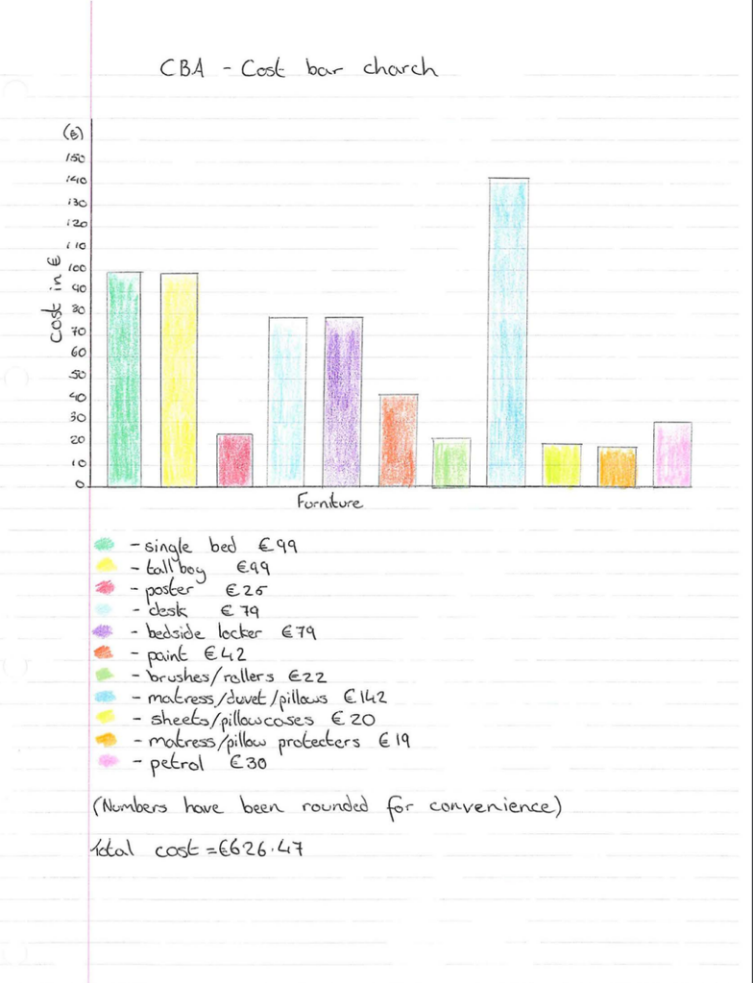 CBA - Cost bar charch
(€)
150
140
130
120
110
100
90
80
70
60
50
40
30
20
10
0
Cost in €
Furniture
- single bed €99
- tall boy €99
- poster €25
- desk €79
- bedside locker €79
- paint €42
- brushes/rollers €22
- matress/duvet/pillows €142
- sheets/pillowcases €20
- matress/pillow protecters €19
- petrol €30
(Numbers have been rounded for convenience)
Total cost = €626.47